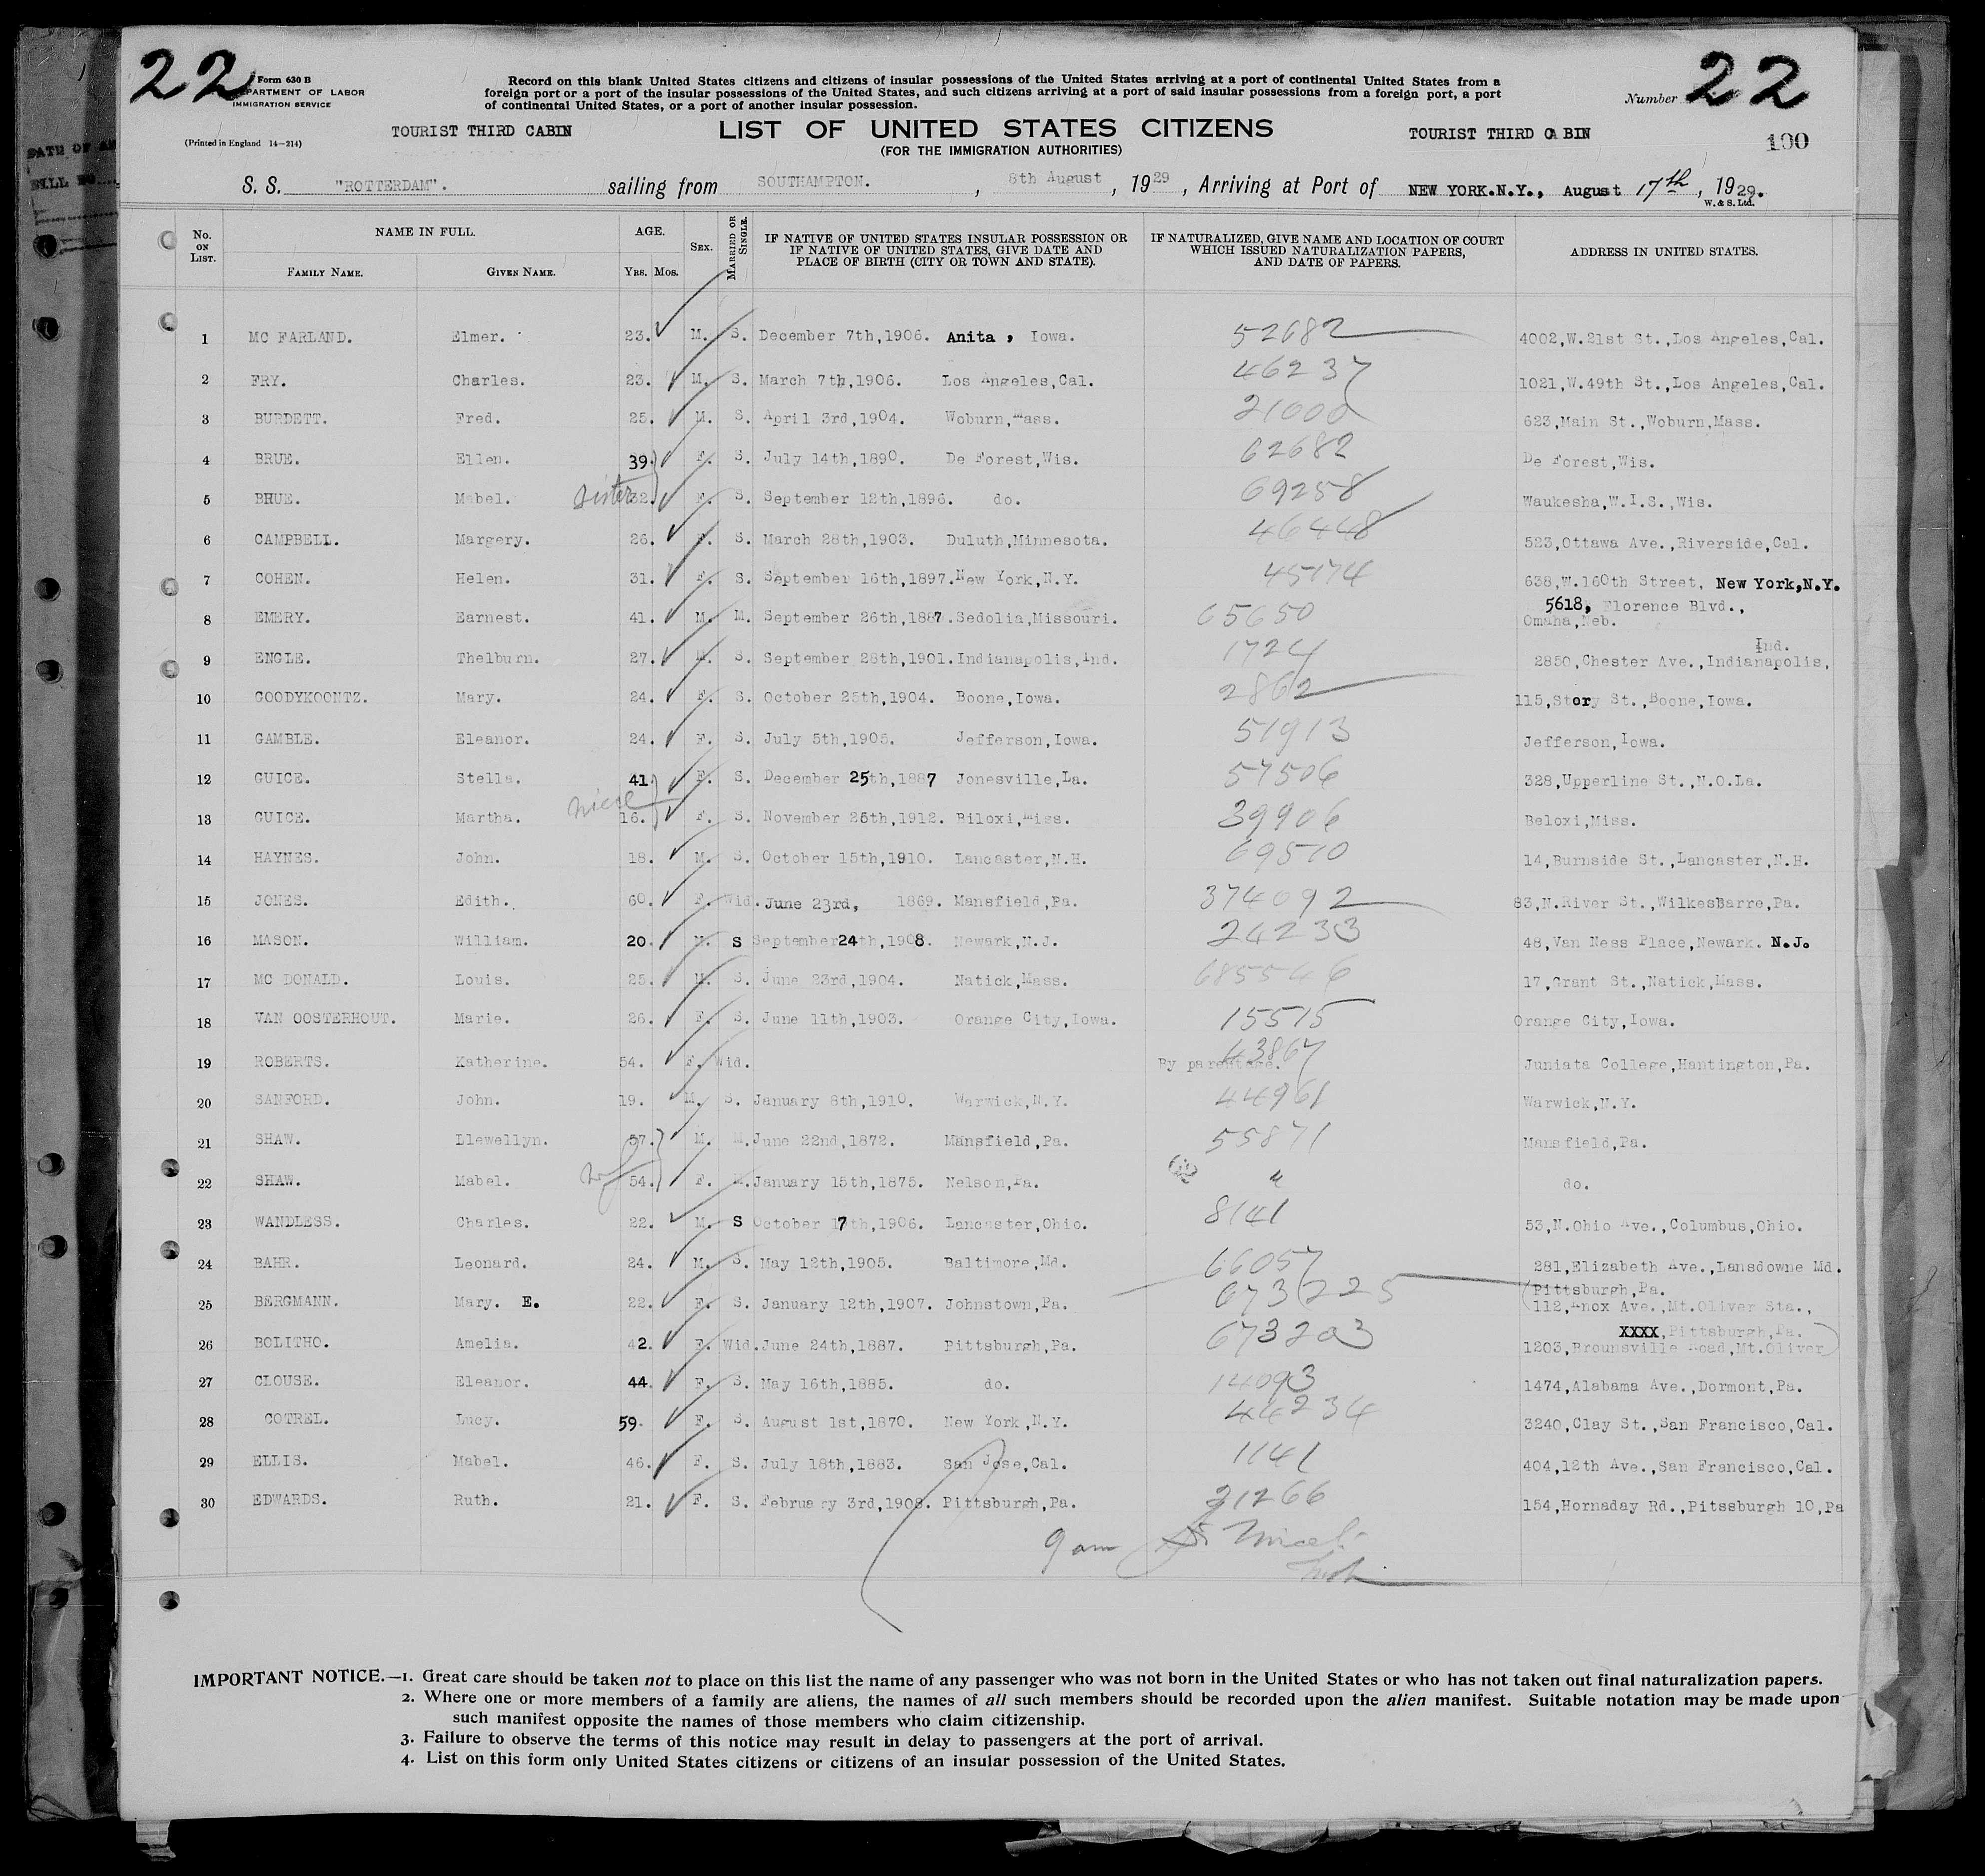 22
Form 630 B
DEPARTMENT OF LABOR
IMMIGRATION SERVICE
Record on this blank United States citizens and citizens of insular possessions of the United States arriving at a port of continental United States from a
foreign port or a port of the insular possessions of the United States, and such citizens arriving at a port of said insular possessions from a foreign port, a port
of continental United States, or a port of another insular possession.
Number 22
(Printed in England 14-214)
TOURIST THIRD CABIN
LIST OF UNITED STATES CITIZENS
TOURIST THIRD CABIN
190
(FOR THE IMMIGRATION AUTHORITIES)
S. S. "ROTTERDAM". sailing from SOUTHAMPTON. , 8th August , 1929 , Arriving at Port of NEW YORK.N.Y., August 17th , 1929.
W. & S. Ltd.
No. ON LIST. NAME IN FULL. FAMILY NAME. GIVEN NAME. AGE. YRS. MOS. SEX. MARRIED OR SINGLE. IF NATIVE OF UNITED STATES INSULAR POSSESSION OR IF NATIVE OF UNITED STATES, GIVE DATE AND PLACE OF BIRTH (CITY OR TOWN AND STATE). IF NATURALIZED, GIVE NAME AND LOCATION OF COURT WHICH ISSUED NATURALIZATION PAPERS, AND DATE OF PAPERS. ADDRESS IN UNITED STATES.
1 MC FARLAND. Elmer. 23. M. S. December 7th,1906. Anita , Iowa. 52682 4002,W.21st St.,Los Angeles,Cal.
2 FRY. Charles. 23. M. S. March 7th,1906. Los Angeles,Cal. 46237 1021,W.49th St.,Los Angeles,Cal.
3 BURDETT. Fred. 25. M. S. April 3rd,1904. Woburn,Mass. 21000 623,Main St.,Woburn,Mass.
4 BRUE. Ellen. 39. F. S. July 14th,1890. De Forest,Wis. 62682 De Forest,Wis.
5 BRUE. Mabel. sister 32. F. S. September 12th,1896. do. 69258 Waukesha,W.I.S.,Wis.
6 CAMPBELL. Margery. 26. F. S. March 28th,1903. Duluth,Minnesota. 46448 523,Ottawa Ave.,Riverside,Cal.
7 COHEN. Helen. 31. F. S. September 16th,1897. New York,N.Y. 45174 638,W.160th Street, New York,N.Y.
8 EMERY. Earnest. 41. M. M. September 26th,1887. Sedolia,Missouri. 65650 5618, Florence Blvd.,
Omaha,Neb.
9 ENGLE. Thelburn. 27. M. S. September 28th,1901. Indianapolis,Ind. 1724 2850,Chester Ave.,Indianapolis, Ind.
10 GOODYKOONTZ. Mary. 24. F. S. October 25th,1904. Boone,Iowa. 2862 115,Story St.,Boone,Iowa.
11 GAMBLE. Eleanor. 24. F. S. July 5th,1905. Jefferson,Iowa. 51913 Jefferson,Iowa.
12 GUICE. Stella. 41. F. S. December 25th,1887 Jonesville,La. 57506 328,Upperline St.,N.O.La.
13 GUICE. Martha. niece 16. F. S. November 25th,1912. Biloxi,Miss. 39906 Beloxi,Miss.
14 HAYNES. John. 18. M. S. October 15th,1910. Lancaster,N.H. 69510 14,Burnside St.,Lancaster,N.H.
15 JONES. Edith. 60. F. Wid. June 23rd, 1869. Mansfield,Pa. 374092 83,N.River St.,WilkesBarre,Pa.
16 MASON. William. 20. M. S September 24th,1908. Newark,N.J. 24233 48,Van Ness Place,Newark. N.J.
17 MC DONALD. Louis. 25. M. S. June 23rd,1904. Natick,Mass. 685546 17,Grant St.,Natick,Mass.
18 VAN OOSTERHOUT. Marie. 26. F. S. June 11th,1903. Orange City,Iowa. 15515 Orange City,Iowa.
19 ROBERTS. Katherine. 54. F. Wid. By parentage. 43867 Juniata College,Hantington,Pa.
20 SANFORD. John. 19. M. S. January 8th,1910. Warwick,N.Y. 44961 Warwick,N.Y.
21 SHAW. Llewellyn. 57. M. M. June 22nd,1872. Mansfield,Pa. 55871 Mansfield,Pa.
22 SHAW. Mabel. wf 54. F. M. January 15th,1875. Nelson,Pa. " do.
23 WANDLESS. Charles. 22. M. S October 17th,1906. Lancaster,Ohio. 8141 53,N.Ohio Ave.,Columbus,Ohio.
24 BAHR. Leonard. 24. M. S. May 12th,1905. Baltimore,Md. 66057 281,Elizabeth Ave.,Lansdowne Md.
25 BERGMANN. Mary. E. 22. F. S. January 12th,1907. Johnstown,Pa. 673225 (Pittsburgh,Pa.
112,Knox Ave.,Mt.Oliver Sta.,
26 BOLITHO. Amelia. 42. F. Wid. June 24th,1887. Pittsburgh,Pa. 673203 XXXX,Pittsburgh,Pa.
1203,Brounsville Road,Mt.Oliver)
27 CLOUSE. Eleanor. 44. F. S. May 16th,1885. do. 14093 1474,Alabama Ave.,Dormont,Pa.
28 COTREL. Lucy. 59. F. S. August 1st,1870. New York,N.Y. 44234 3240,Clay St.,San Francisco,Cal.
29 ELLIS. Mabel. 46. F. S. July 18th,1883. San Jose,Cal. 1141 404,12th Ave.,San Francisco,Cal.
30 EDWARDS. Ruth. 21. F. S. February 3rd,1908. Pittsburgh,Pa. 21266 154,Hornaday Rd.,Pitssburgh 10,Pa
9 am
IMPORTANT NOTICE.—1. Great care should be taken not to place on this list the name of any passenger who was not born in the United States or who has not taken out final naturalization papers.
2. Where one or more members of a family are aliens, the names of all such members should be recorded upon the alien manifest. Suitable notation may be made upon
such manifest opposite the names of those members who claim citizenship.
3. Failure to observe the terms of this notice may result in delay to passengers at the port of arrival.
4. List on this form only United States citizens or citizens of an insular possession of the United States.